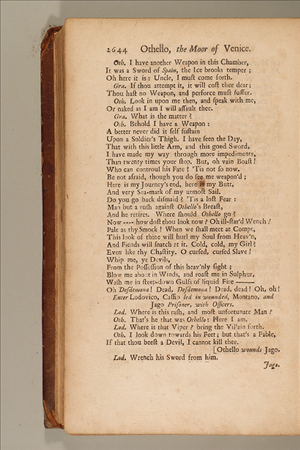 2644 Othello, the Moor of Venice.
Oth. I have another Weapon in this Chamber,
It was a Sword of Spain, the Ice brooks temper;
Oh here it is: Uncle, I must come forth.
Gra. If thou attempt it, it will cost thee dear;
Thou hast no Weapon, and perforce must suffer.
Oth. Look in upon me then, and speak with me,
Or naked as I am I will assault thee.
Gra. What is the matter?
Oth. Behold I have a Weapon:
A better never did it self sustain
Upon a Soldier's Thigh. I have seen the Day,
That with this little Arm, and this good Sword,
I have made my way through more impediments,
Than twenty times your stop. But, oh vain Boast!
Who can controul his Fate? 'Tis not so now,
Be not afraid, though you do see me weapon'd;
Here is my Journey's end, here is my Butt,
And very Sea-mark of my utmost Sail.
Do you go back dismaid? 'Tis a lost Fear:
Man but a rush against Othello's Breast,
And he retires. Where should Othello go?
Now —— how dost thou look now? Oh ill-starr'd Wench!
Pale as thy Smock! When we shall meet at Compt,
This look of thine will hurl my Soul from Heav'n,
And Fiends will snatch at it. Cold, cold, my Girl?
Even like thy Chastity. O cursed, cursed Slave!
Whip me, ye Devils,
From the Possession of this heav'nly sight;
Blow me about in Winds, and roast me in Sulphur,
Wash me in steep-down Gulfs of liquid Fire ——
Oh Desdemona! Dead, Desdemona! Dead, dead! Oh, oh!
Enter Lodovico, Cassio led in wounded, Montano, and
Jago Prisoner, with Officers.
Lod. Where is this rash, and most unfortunate Man?
Oth. That's he that was Othello: Here I am.
Lod. Where is that Viper? bring the Villain forth.
Oth. I look down towards his Feet; but that's a Fable,
If that thou beest a Devil, I cannot kill thee.
[Othello wounds Jago.
Lod. Wrench his Sword from him.
Jago.